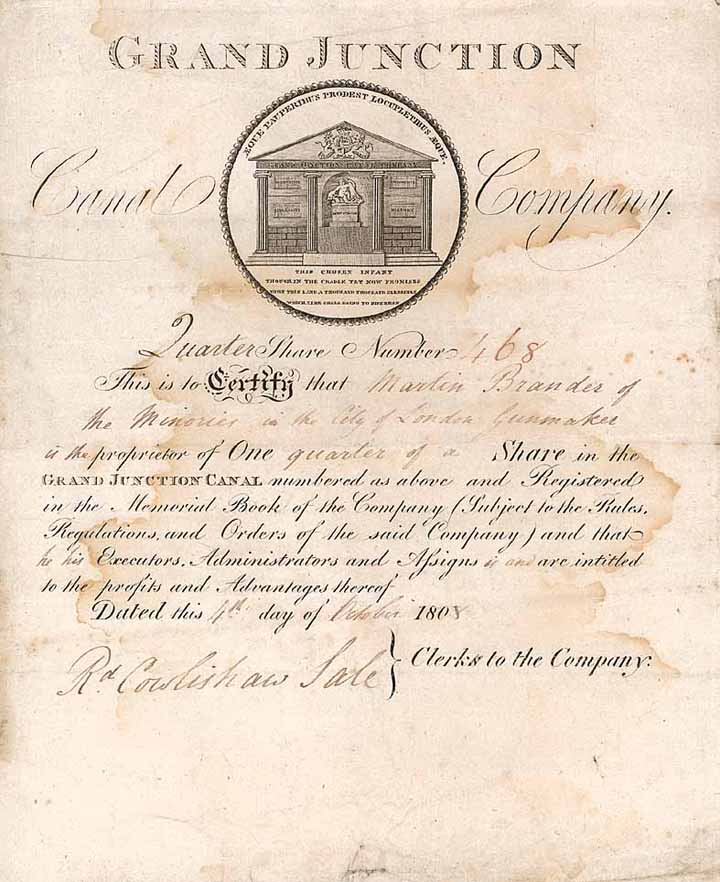 GRAND JUNCTION
ÆQUE PAUPERIBUS PRODEST LOCUPLETIBUS ÆQUE
Canal Company.
GRAND JUNCTION CANAL COMPANY
THIS CHOSEN INFANT
THOUGH IN THE CRADLE YET NOW PROMISES
UPON THIS LAND A THOUSAND THOUSAND BLESSINGS
WHICH TIME SHALL BRING TO RIPENESS
Quarter Share Number 468
This is to Certify that Martin Brander of
the Minories in the City of London Gunmaker
is the proprietor of One quarter of a Share in the
GRAND JUNCTION CANAL numbered as above and Registered
in the Memorial Book of the Company (Subject to the Rules,
Regulations, and Orders of the said Company) and that
he his Executors, Administrators and Assigns is and are intitled
to the profits and Advantages thereof
Dated this 4th day of October 180
Rd Cowlishaw Sale } Clerks to the Company.